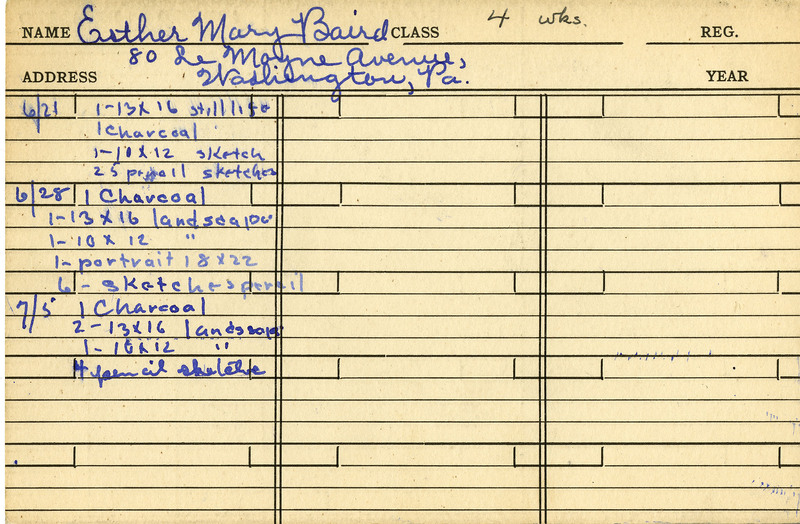 NAME Esther Mary Baird CLASS 4 wks. REG.
80 Le Moyne Avenue,
ADDRESS Washington, Pa. YEAR
6/21 1-13X16 still life
1 Charcoal
1-10X12 sketch
25 pencil sketches
6/28 1 Charcoal
1-13X16 landscape
1-10X12 "
1-portrait 18X22
6-sketches pencil
7/5 1 Charcoal
2-13X16 landscape
1-10X12 "
4 pencil sketches